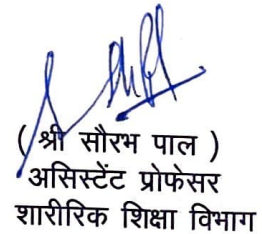 ( श्री सौरभ पाल )
असिस्टेंट प्रोफेसर
शारीरिक शिक्षा विभाग